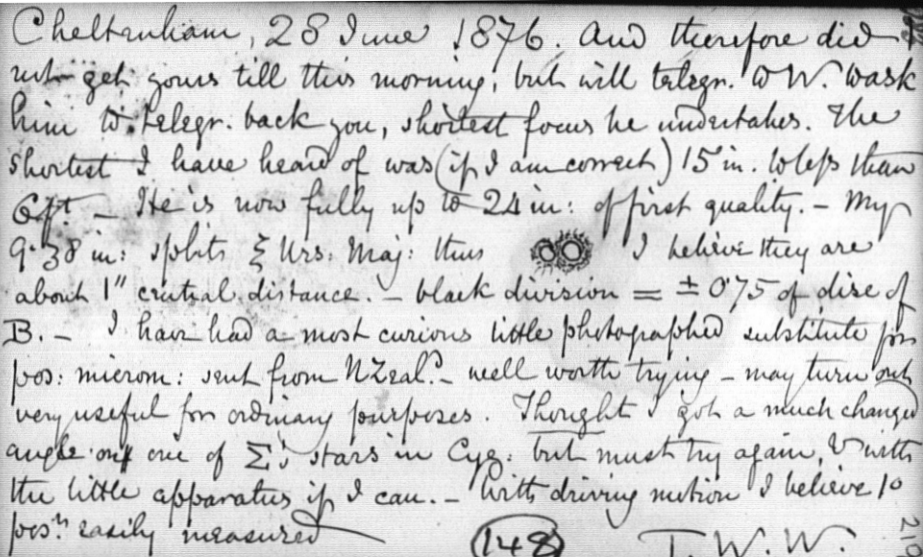 Cheltenham, 28 June 1876. And therefore did
not get yours till this morning, but will telegr. to W. to ask
him to telegr. back you, shortest focus he undertakes. The
shortest I have heard of was (if I am correct) 15 in. to less than
6 ft — He is now fully up to 24 in: of first quality. — My
9.38 in: splits ξ Urs. Maj: thus I believe they are
about 1" central distance. — black division = ± 0.75 of disc of
B. — I have had a most curious little photographed substitute for
pos: microm: sent from N Zeal.d — well worth trying — may turn out
very useful for ordinary purposes. Thought I got a much changed
angle one of Σ's stars in Cyg: but must try again, & with
the little apparatus if I can. — With driving motion I believe 1°
pos.n easily measured
148 T. W. W.